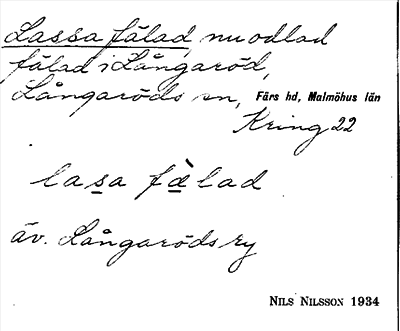 Lassa fälad, nu odlad
fälad i Långaröd,
Långaröds sn, Färs hd, Malmöhus län
Kring 22
lasa fälad
äv. Långaröds ry
NILS NILSSON 1934